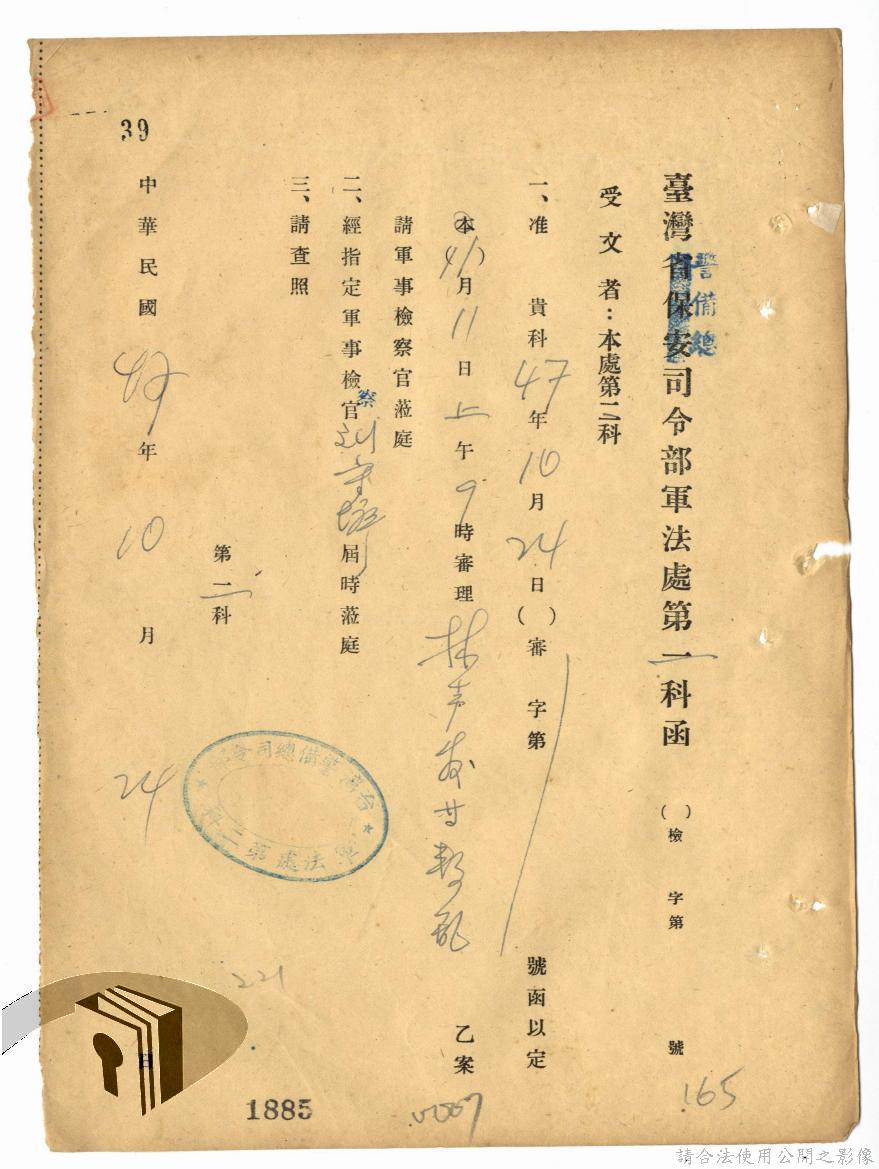 臺灣省保安司令部軍法處第一科函 ( )檢 字第 號
警備總
165
受文者：本處第二科
一、准 貴科47年10月24日( )審 字第 號函以定
本月11日上午9時審理林声发廿叛乱 乙案
請軍事檢察官蒞庭
二、經指定軍事檢察官 屆時蒞庭
三、請查照
第二科
中華民國47年10月24日
台灣警備總司令部
軍法處第二科
39
221
1885
請合法使用公開之影像